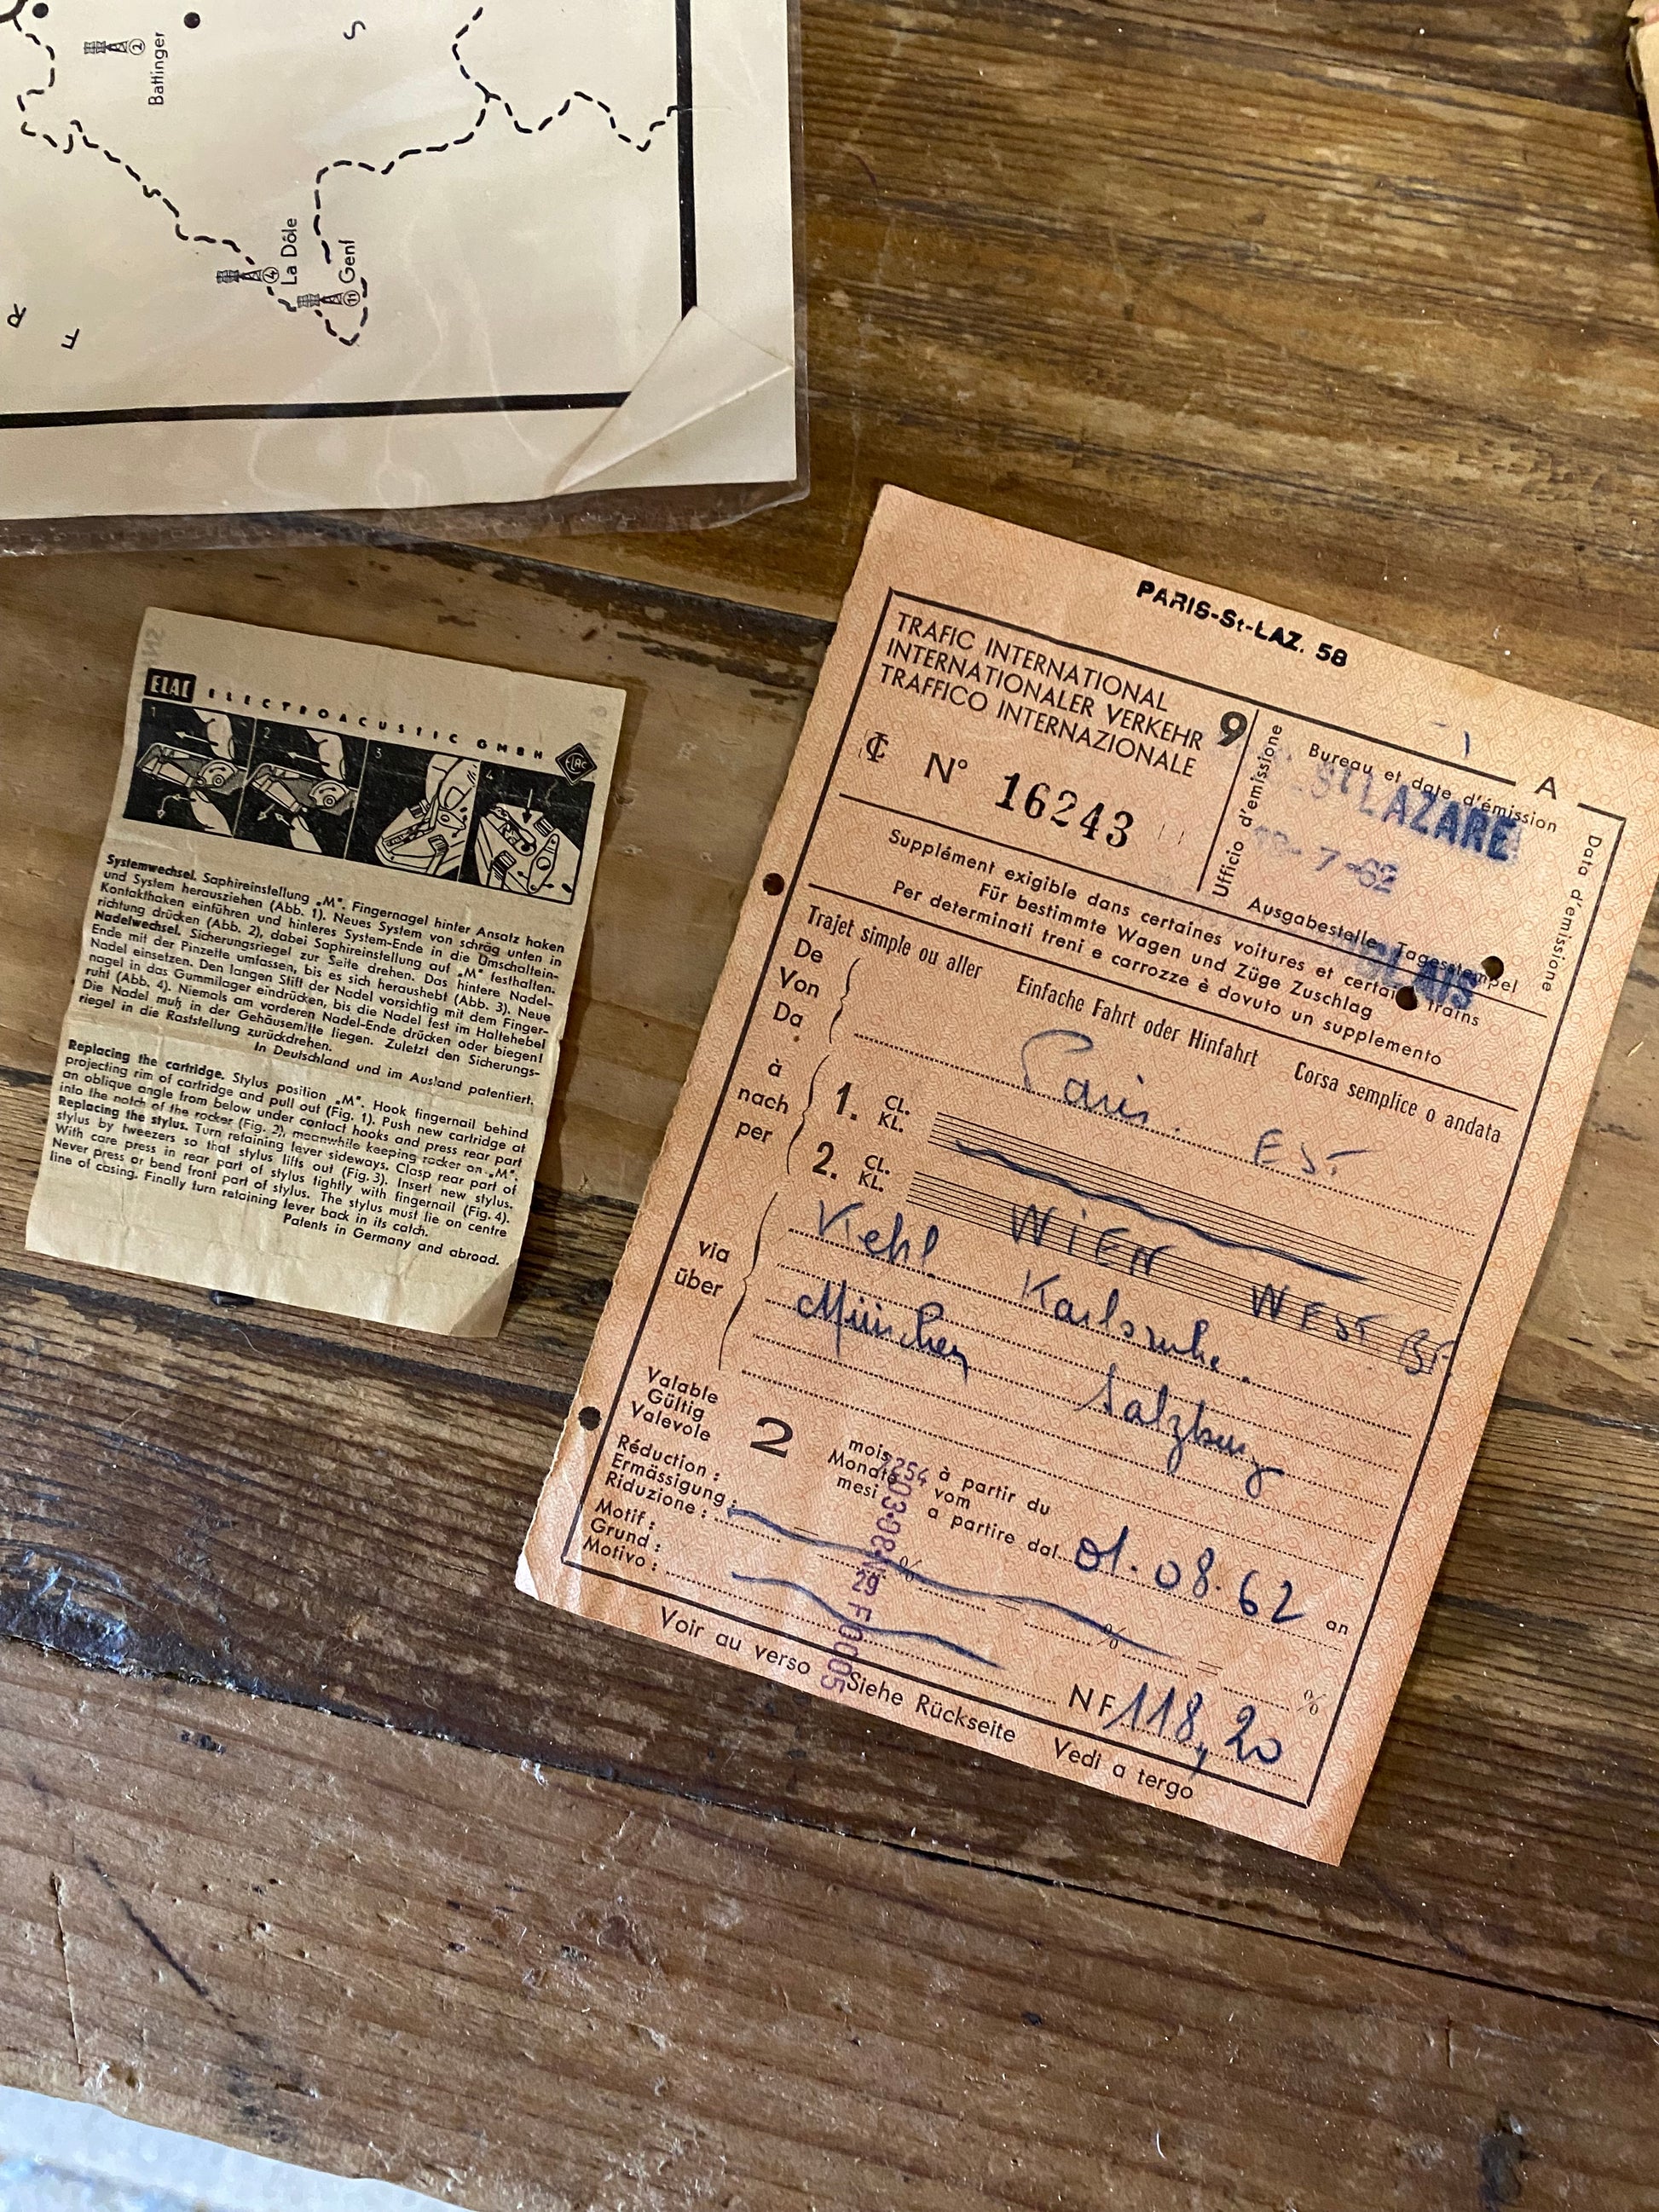 Battinger
②
S
La Dôle
④
Genf
⑪
R
F
ELAC ELECTROACUSTIC GMBH ELAC
1 2 3 4
Systemwechsel. Saphireinstellung „M". Fingernagel hinter Ansatz haken
und System herausziehen (Abb. 1). Neues System von schräg unten in
Kontakthaken einführen und hinteres System-Ende in die Umschaltein-
richtung drücken (Abb. 2), dabei Saphireinstellung auf „M" festhalten.
Nadelwechsel. Sicherungsriegel zur Seite drehen. Das hintere Nadel-
Ende mit der Pinzette umfassen, bis es sich heraushebt (Abb. 3). Neue
Nadel einsetzen. Den langen Stift der Nadel vorsichtig mit dem Finger-
nagel in das Gummilager eindrücken, bis die Nadel fest im Haltehebel
ruht (Abb. 4). Niemals am vorderen Nadel-Ende drücken oder biegen!
Die Nadel muß in der Gehäusemitte liegen. Zuletzt den Sicherungs-
riegel in die Raststellung zurückdrehen.
In Deutschland und im Ausland patentiert.
Replacing the cartridge. Stylus position „M". Hook fingernail behind
projecting rim of cartridge and pull out (Fig. 1). Push new cartridge at
an oblique angle from below under contact hooks and press rear part
into the notch of the rocker (Fig. 2), meanwhile keeping rocker on „M".
Replacing the stylus. Turn retaining lever sideways. Clasp rear part of
stylus by tweezers so that stylus lifts out (Fig. 3). Insert new stylus.
With care press in rear part of stylus tightly with fingernail (Fig. 4).
Never press or bend front part of stylus. The stylus must lie on centre
line of casing. Finally turn retaining lever back in its catch.
Patents in Germany and abroad.
PARIS-St-LAZ. 58
TRAFIC INTERNATIONAL
INTERNATIONALER VERKEHR
TRAFFICO INTERNAZIONALE
9
N° 16243
A
Bureau et date d'émission
Ufficio d'emissione
Data d'emissione
St LAZARE
-7-62
Ausgabestelle Tagesstempel
Supplément exigible dans certaines voitures et certains trains
Für bestimmte Wagen und Züge Zuschlag
Per determinati treni e carrozze è dovuto un supplemento
Trajet simple ou aller Einfache Fahrt oder Hinfahrt Corsa semplice o andata
De
Von
Da
Paris. EST
à
nach
per
1. CL. KL.
2. CL. KL.
WIEN WEST Bf.
via
über
Kehl Karlsruhe.
München Salzburg
Valable
Gültig
Valevole
2
mois à partir du
Monate vom
mesi a partire dal 01.08.62 an
Réduction :
Ermässigung :
Riduzione :
% % %
Motif :
Grund :
Motivo :
NF 118,20
Voir au verso Siehe Rückseite Vedi a tergo